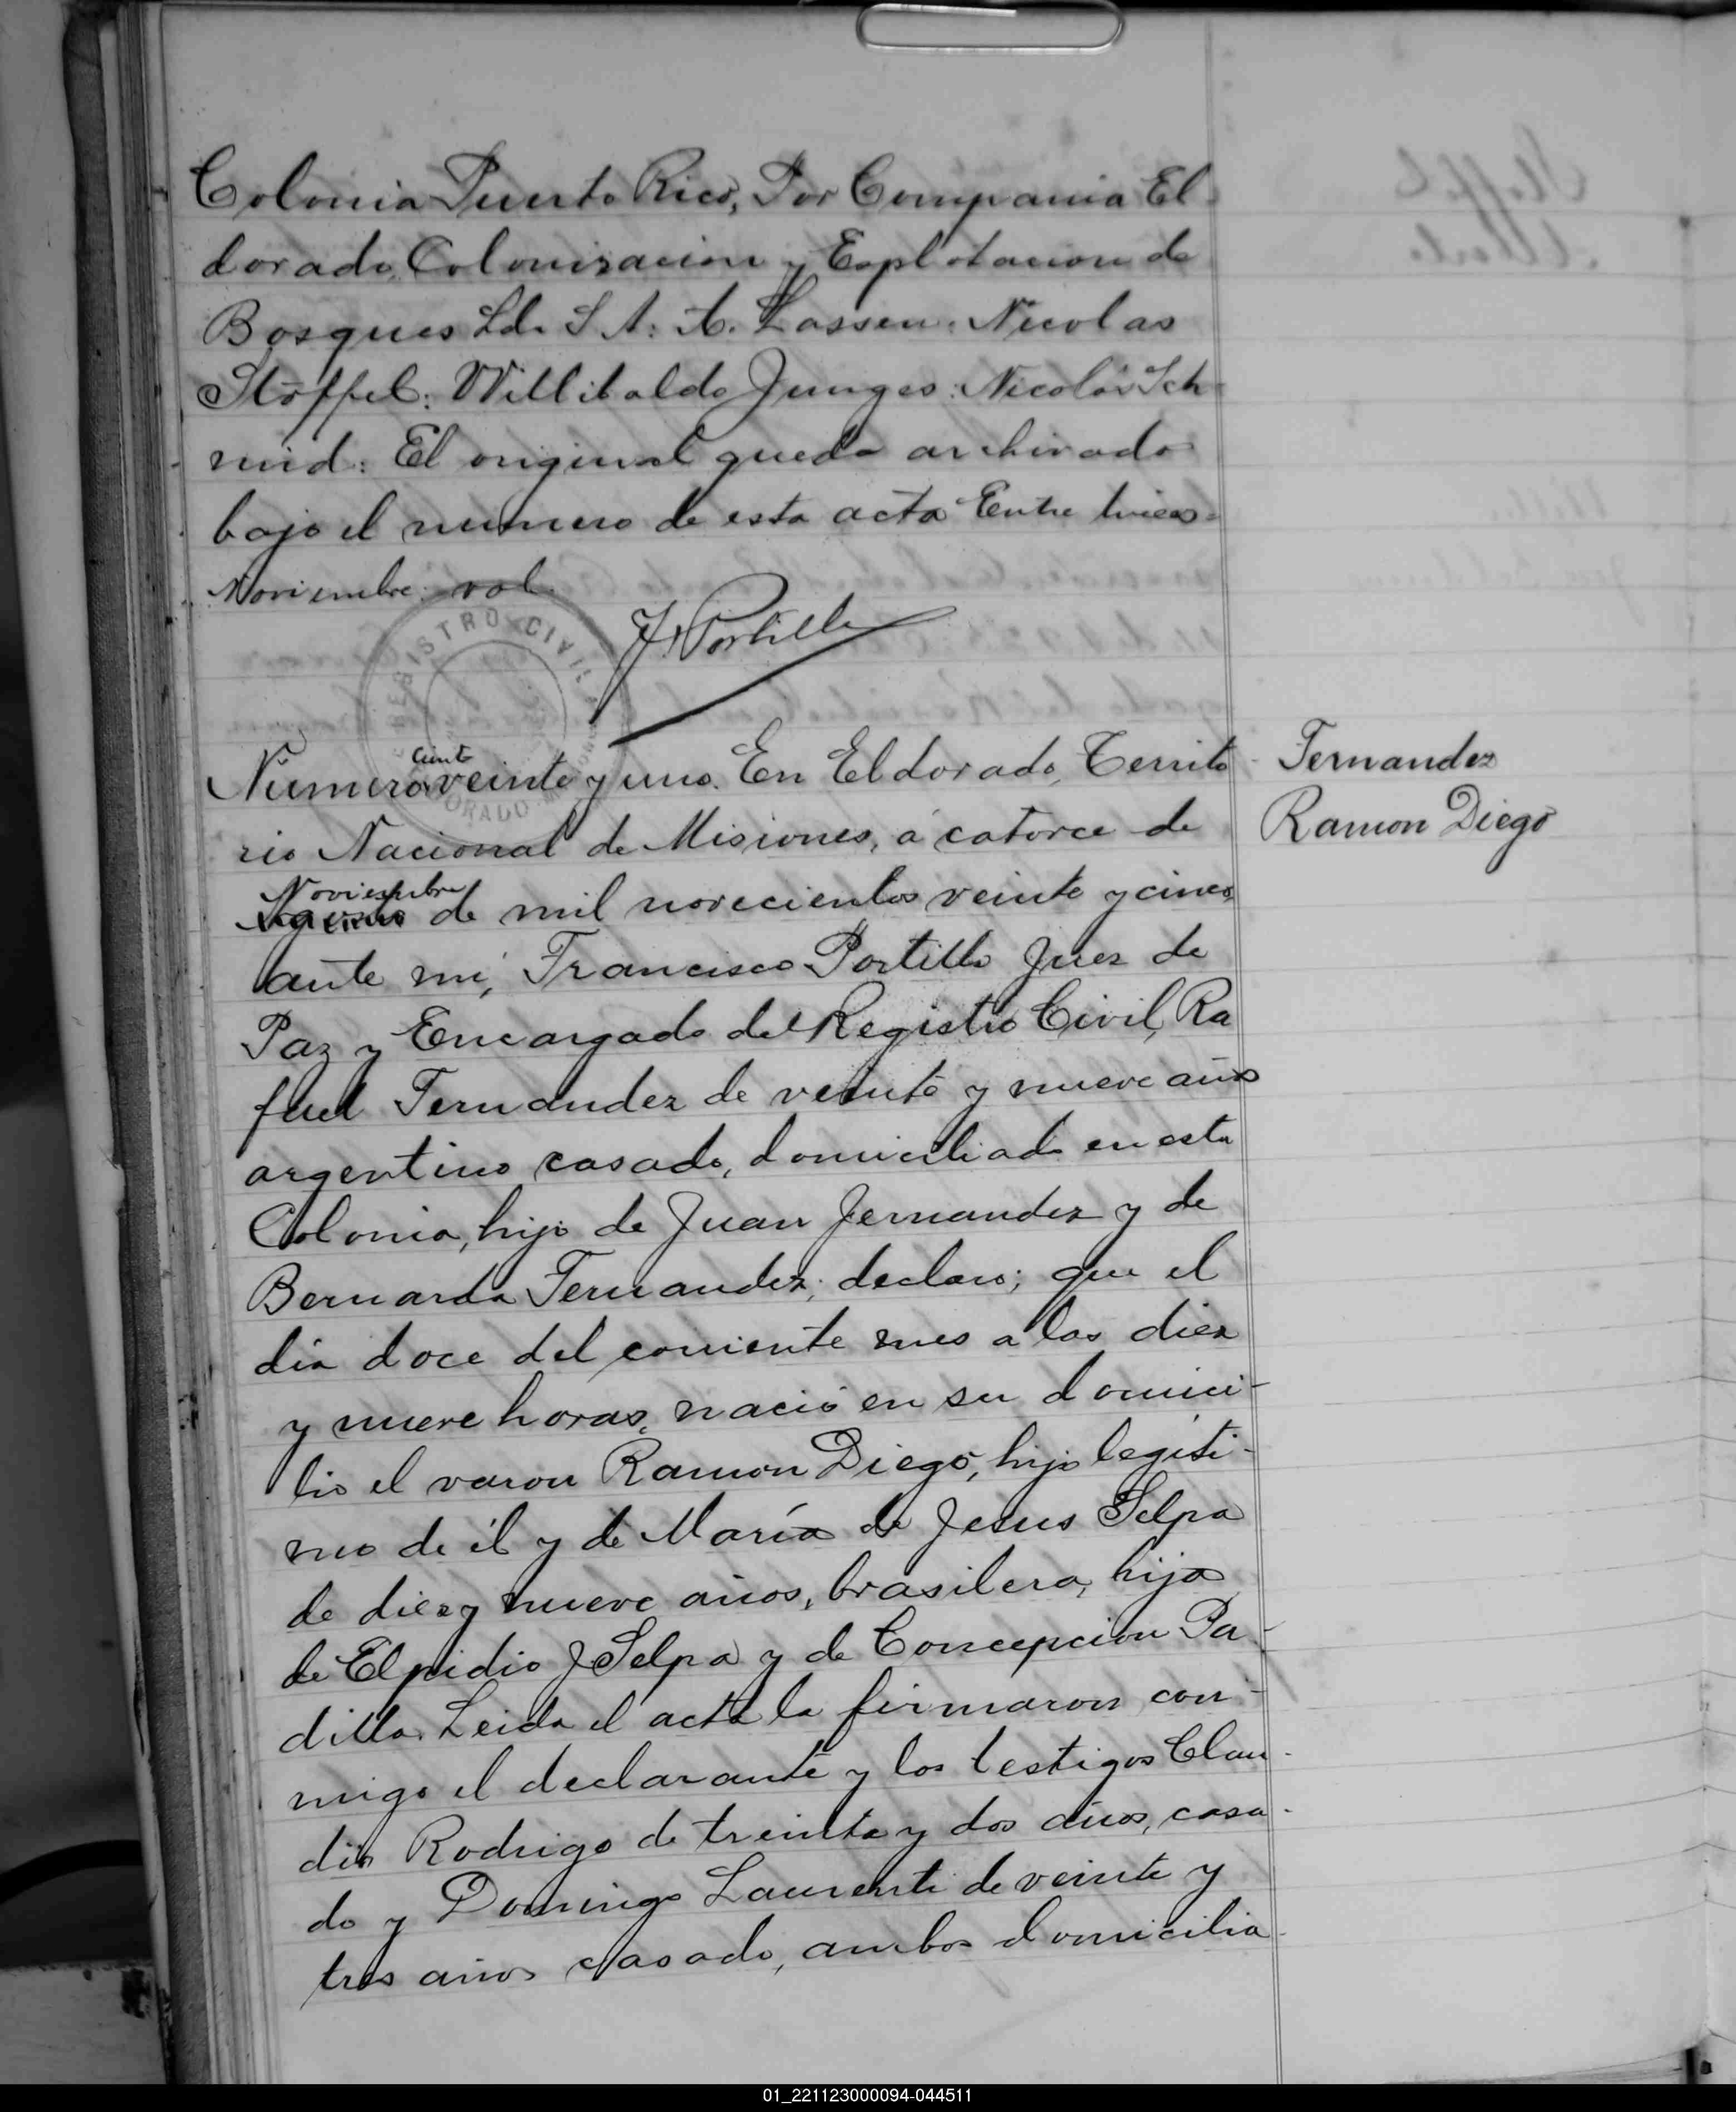 Colonia Puerto Rico, Por Compania El-
dorado, Colonizacion y Explotacion de
Bosques Ltda S A: A. Lassen: Nicolas
Stoffel: Willibaldo Junges: Nicolás Sch
mid: El original queda archivado
bajo el numero de esta acta Entre lineas=
Noviembre: val.
F. Portillo
REGISTRO CIVIL
ELDORADO
Numero ciento veinte y uno. En Eldorado, Territo-
rio Nacional de Misiones, á catorce de
Noviembre de mil novecientos veinte y cinco,
ante mi, Francisco Portillo Juez de
Paz y Encargado del Registro Civil, Ra
fael Fernandez de veinte y nueve años
argentino casado, domiciliado en esta
Colonia, hijo de Juan Fernandez y de
Bernarda Fernandez; declaro; que el
dia doce del corriente mes a las diez
y nueve horas, nació en su domici-
lio el varon Ramon Diego, hijo legiti-
mo de él y de María de Jesus Selpa
de diez y nueve años, brasilera, hija
de Elpidio J Selpa y de Concepcion Pa-
dilla. Leida el acta la firmaron con-
migo el declarante y los testigos Clau-
dio Rodrigo de treinta y dos años, casa-
do y Domingo Laurenti de veinte y
tres años casado, ambos domicilia-
Fernandez
Ramon Diego
01_221123000094-044511